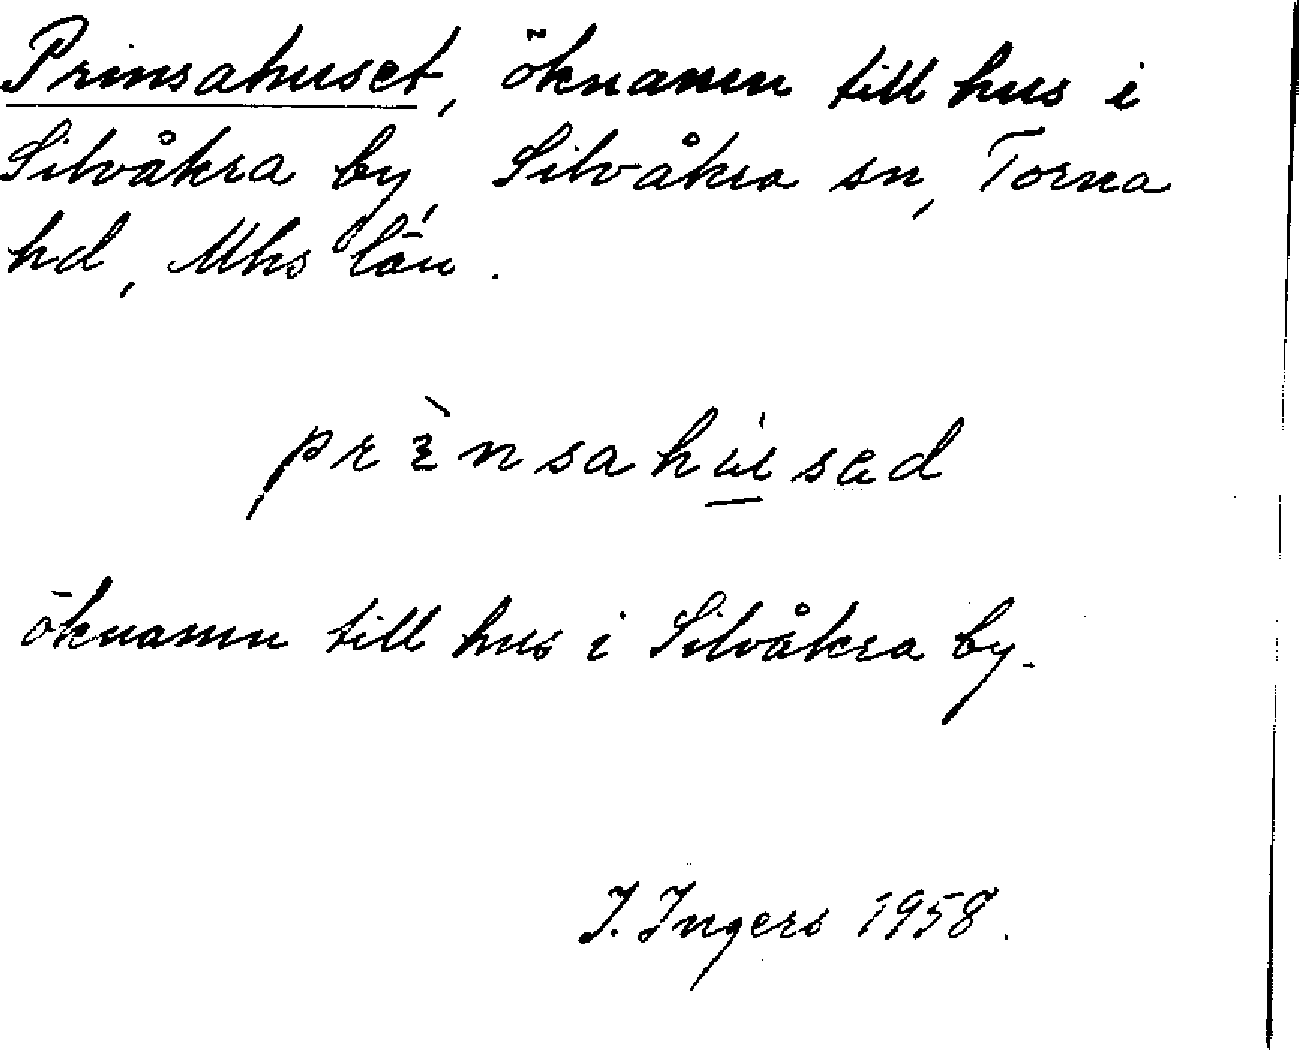 Prinsahuset, öknamn till hus i
Silvåkra by, Silvåkra sn, Torna
hd, Mhs län.
prὲnsahu̲sad
öknamn till hus i Silvåkra by.
I. Ingers 1958.